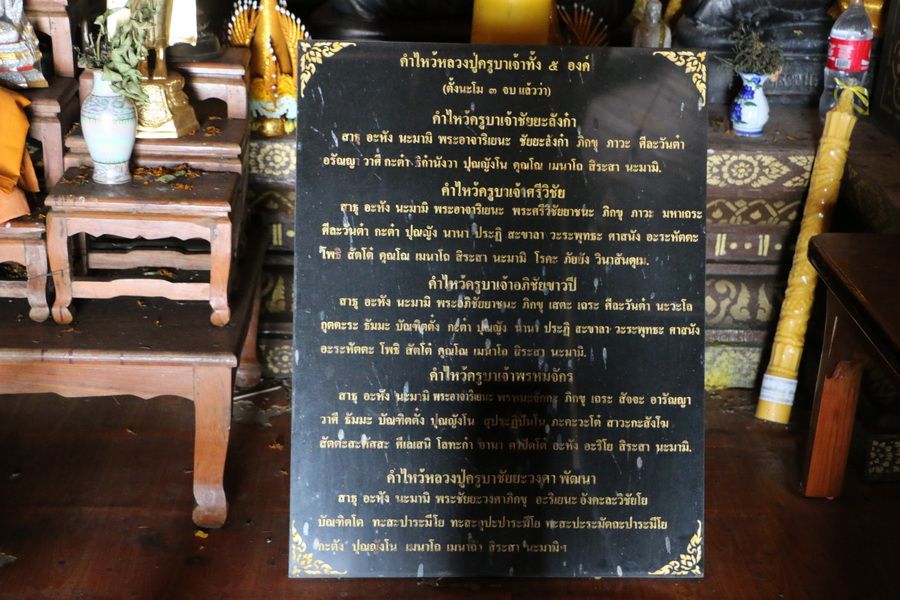 คำไหว้หลวงปู่ครูบาเจ้าทั้ง ๕ องค์
(ตั้งนะโม ๓ จบ แล้วว่า)
คำไหว้ครูบาเจ้าชัยยะลังก๋า
สาธุ อะหัง นะมามิ พระอาจาริยนะ ชัยยะลังก๋า ภิกขุ ภาวะ ศีละวันต๋า
อรัญญา วาศี กะต๋า ริกำนังวา ปุญญังโน คุณโณ เมนาโถ สิระสา นะมามิ.
คำไหว้ครูบาเจ้าศรีวิชัย
สาธุ อะหัง นะมามิ พระอาจาริยนะ พระศรีวิชัยยาชนะ ภิกขุ ภาวะ มหาเถระ
ศีละวันต๋า กะต๋า ปุญญัง นานา ประฏิ สะขาลา วะระพุทธะ ศาสนัง อะระหัตตะ
โพธิ สัตโต๋ คุณโณ เมนาโถ สิระสา นะมามิ โรคะ ภัยยัง วินาสันตุเม.
คำไหว้ครูบาเจ้าอภิชัยขาวปี
สาธุ อะหัง นะมามิ พระอภิชัยยาชนะ ภิกขุ เสตะ เถระ ศีละวันต๋า นะวะโล
กุตตะระ ธัมมะ บัณฑิตตั๋ง กะต๋า ปุญญัง นานา ประฏิ สะขาลา วะระพุทธะ ศาสนัง
อะระหัตตะ โพธิ สัตโต๋ คุณโณ เมนาโถ สิระสา นะมามิ.
คำไหว้ครูบาเจ้าพรหมจักร
สาธุ อะหัง นะมามิ พระอาจาริยนะ พรหมมะจักกะ ภิกขุ เถระ สัจจะ อารัญญา
วาศี ธัมมะ บัณฑิตตั๋ง ปุญญังโน สุประฏิปันโน ภะคะวะโต๋ สาวะกะสังโฆ
สัตตะสะหัสสะ ศีเลเสนิ โลทะก๋า อะหัง อะริโย สิระสา นะมามิ.
คำไหว้หลวงปู่ครูบาชัยยะวงศา พัฒนา
สาธุ อะหัง นะมามิ พระชัยยะวงศาภิกขุ อะริยนะ อังคะละวิชัยโย
บัณฑิตโต ทะสะปาระมีโย ทะสะอุปะปาระมีโย ทะสะปะระมัตถะปาระมีโย
กะตัง ปุญญังโน เมนาโถ เมนาถา สิระสา นะมามิฯ